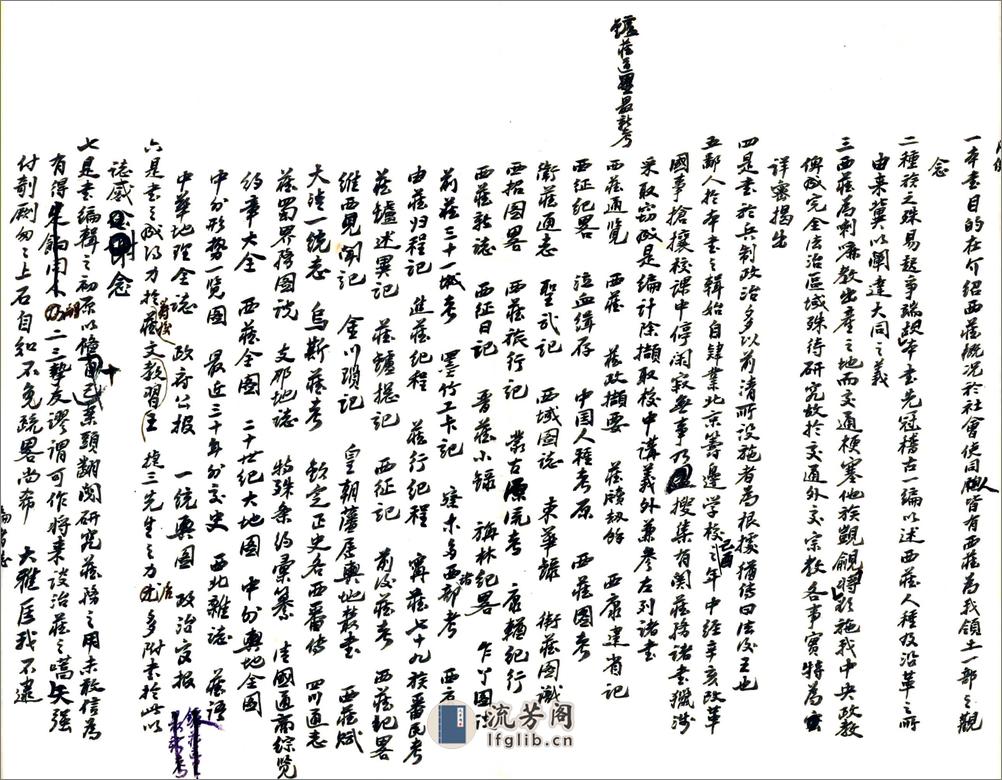 一本書目的在介紹西藏概況於社會使同胞人皆有西藏為我領土一部之觀
念
二種族之殊易起爭端故本書先冠稽古一編以述西藏人種及沿革之所
由來冀以闡達大同之義
三西藏為喇嘛教出產之地而交通梗塞他族覬覦將欲施我中央政教
俾成完全法治區域殊待研究故於交通外交宗教各事實特為
詳審揭出
四是書於兵制政治多以前清所設施者為根據猶信曰法後王也
五鄙人於本書之輯始自肄業北京籌邊學校之年中經辛亥改革
國事搶攘校課中停閒寂無事乃搜集有關藏務諸書獵涉
采取竊成是編計除擷取校中講義外兼參左列諸書
西藏通覽 西藏 藏政擷要 藏牘劫餘 西康建省記
西征紀畧 泣血緝存 中國人種考原 西藏圖考
衛藏通志 聖武記 西域圖誌 東華錄 衛藏圖識
西招圖畧 西藏旅行記 蒙古源流考 康輶紀行
西藏新誌 西征日記 晉藏小錄 旃林紀畧 乍丫圖
前藏三十一城考 墨竹工卡記 察木多西諸部考 西方
由藏歸程記 進藏紀程 藏行紀程 寧藏七十九族番民考
藏鑪述異記 藏鑪總記 西征記 前後藏考 西藏紀畧
維西見聞記 金川瑣記 皇朝藩屬輿地叢書 西藏賦
大清一統志 烏斯藏考 欽定正史各西番傳 四川通志
藏蜀界務圖說 支那地誌 特殊條約彙纂 清國通商綜覽
約章大全 西藏全圖 二十世紀大地圖 中外輿地全圖
中外形勢一覽圖 最近三十年外交史 西北雜誌 藏語
中華地理全誌 政府公報 一統輿圖 政治官報
六是書之成得力於前後藏文教習王 先生之力尤多附書於此以
誌感念
七是書編輯之初原以備自己案頭翻閱研究藏務之用未敢信為
有得二三摯友謬謂可作將來談治藏之嚆矢强
付剞劂匆匆上石自知不免疏畧尚希 大雅匡我不逮
流芳阁
lfglib.cn